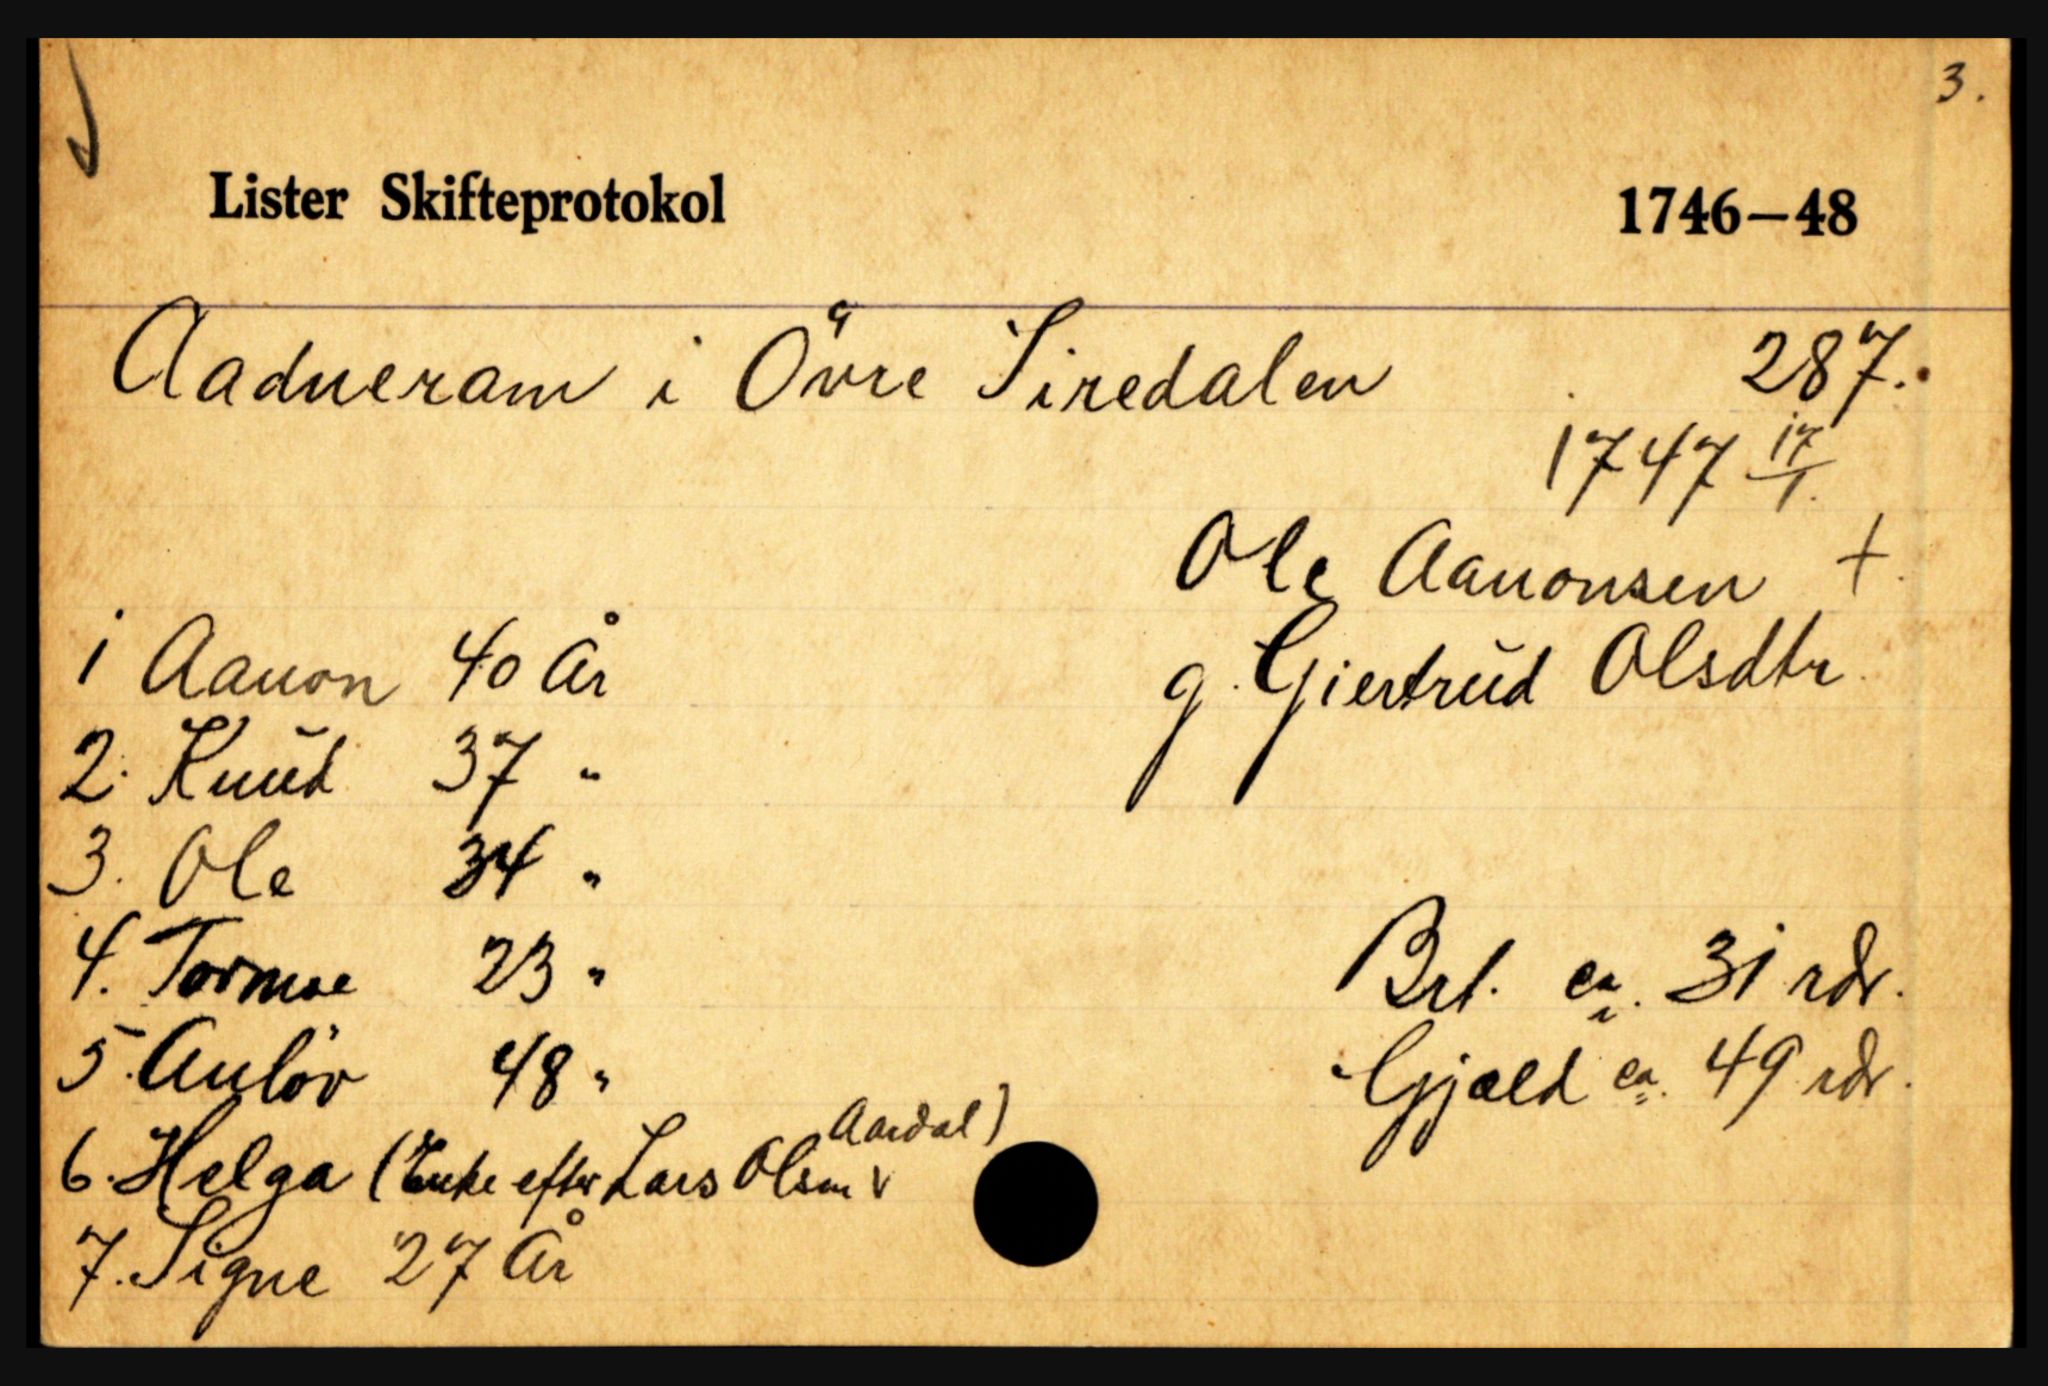 3.
Lister Skifteprotokol 1746—48
Aadneram i Övre Siredalen 287.
1747 17/1.
Ole Aanonsen +.
g. Giertrŭd Olsdtr.
1 Aanon 40 År
2. Knŭd 37 "
3. Ole 34 "
4. Tormoe 23 "
5. Anlöv 48 "
6. Helga (Enke efter Lars Olsen v Aardal)
7. Signe 27 År
Brt. ca. 31 rdr.
Gjæld ca. 49 rdr.